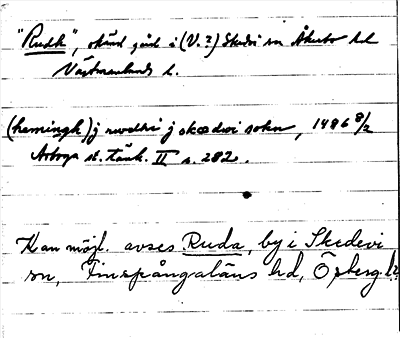 "Rudh", okänd gård i (V.?) Skedvi sn Åkerbo hd
Västmanlands l.
(hemingh) j rwdhi j skædwi sokn, 1486 8/2
Arboga st. tänk. II s. 282.
Kan möjl. avses Ruda, by i Skedevi
sn, Finspångaläns hd, Österg. l?